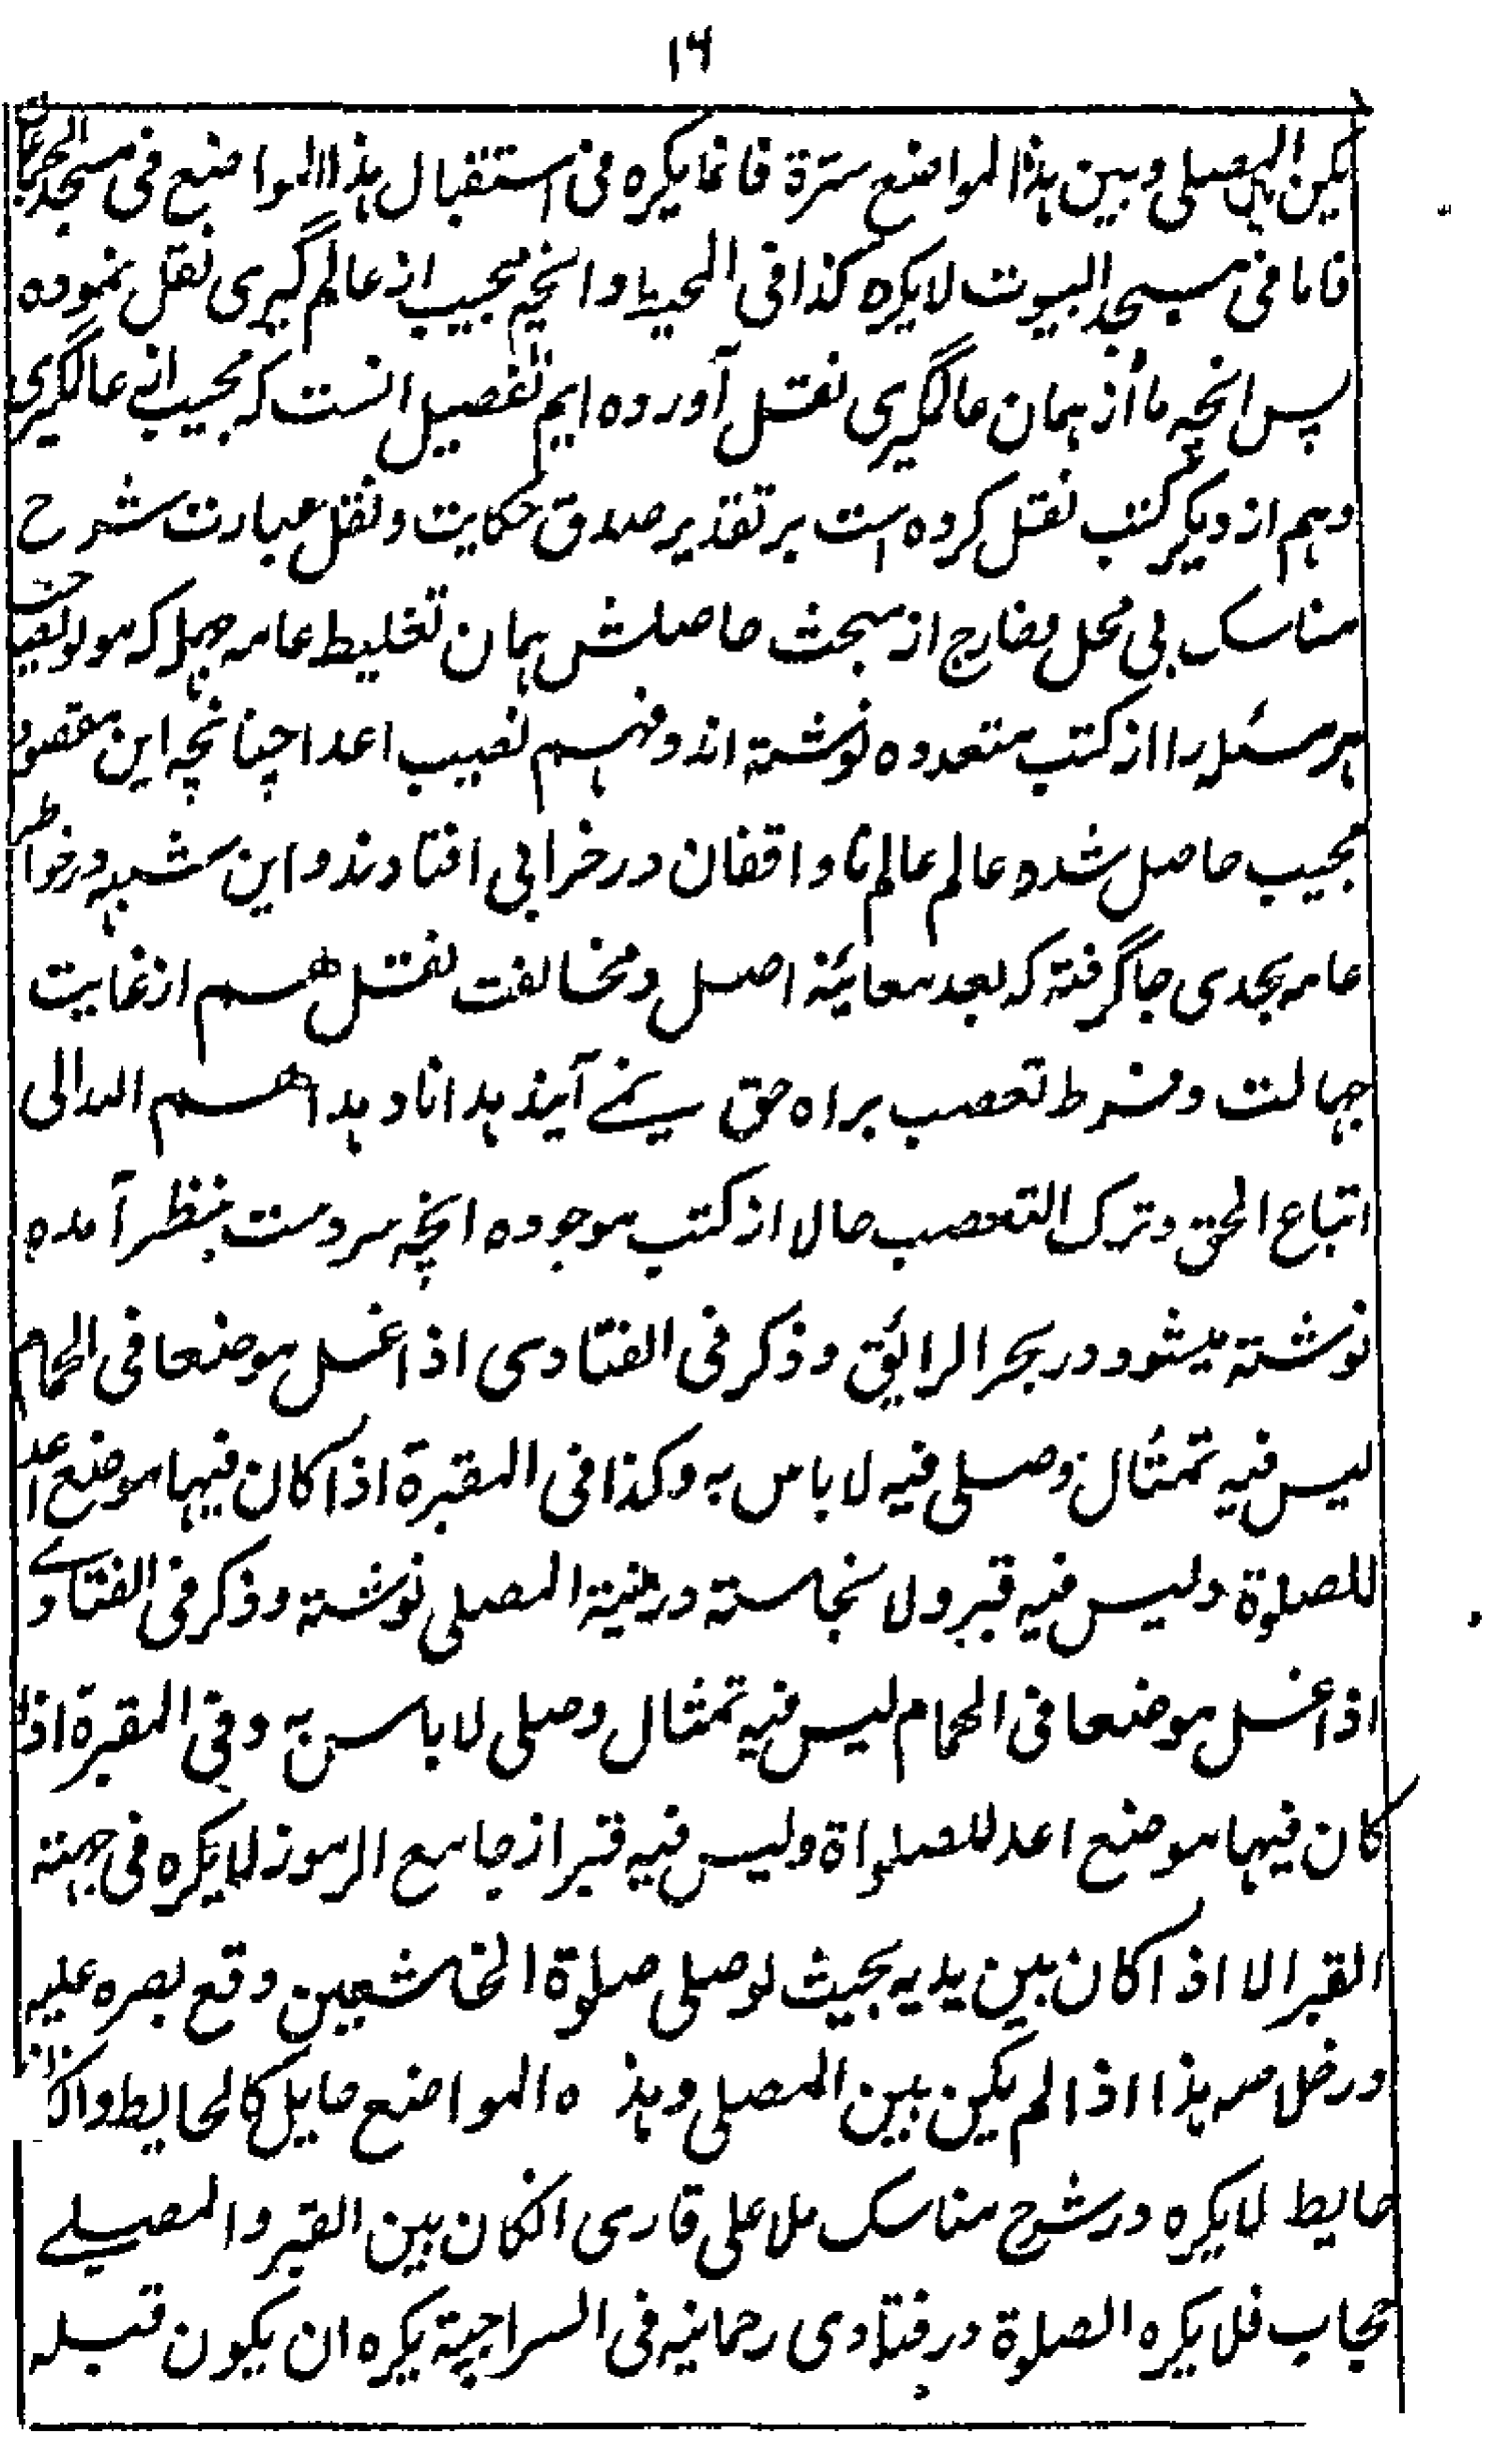 ۱۶
یکن المصلی وبین هذا المواضع سترة فانما یکره فی استقبال هذا المواضع فی مسجد الجماعات
فاما فی مسجد البیوت لایکره کذا فی المحیط وانچه مجیب از عالم گیری نقل نموده
پس انچه ما از همان عالمگیری نقل آورده ایم تفصیل انست که مجیب از عالمگیری
وهم از دیگر کتب نقل کرده است بر تقدیر صدق حکایت ونقل عبارت شرح
مناسک بی محل وخارج از مبحث حاصلش همان تغلیط عامه جهله که مولویصاحب
هر مسئله را از کتب متعدده نوشته اند وفهم نصیب اعدا چنانچه این مقصود
مجیب حاصل شده عالم عالم ناواقفان در خرابی افتادند و این شبهه در خواطر
عامه بحدی جاگرفته که بعد معاینهٔ اصل ومخالفت نقل هم از غایت
جهالت وفرط تعصب براه حق نمی آیند هدانا وهداهم الله الی
اتباع الحق وترک التعصب حالا از کتب موجوده انچه سردست بنظر آمده
نوشته میشود در بحر الرائق وذکر فی الفتاوی اذا غسل موضعا فی الحمام
لیس فیه تمثال وصلی فیه لا باس به وکذا فی المقبرة اذا کان فیها موضع اعد
للصلوة ولیس فیه قبر ولا نجاسته در منیة المصلی نوشته وذکر فی الفتاوے
اذا غسل موضعا فی الحمام لیس فیه تمثال وصلی لا باس به وفی المقبرة اذا
کان فیها موضع اعد للصلواة ولیس فیه قبر از جامع الرموز لا یکره فی جهته
القبر الا اذا کان بین یدیه بحیث لو صلی صلوة الخاشعین وقع بصره علیه
در خلاصه هذا اذا لم یکن بین المصلی وهذه المواضع حایل کالحایط واذا کان
حایط لا یکره در شرح مناسک ملا علی قاری انکان بین القبر والمصلے
حجاب فلا یکره الصلوة در فتاوی رحمانیه فی السراجیة یکره ان یکون قبله